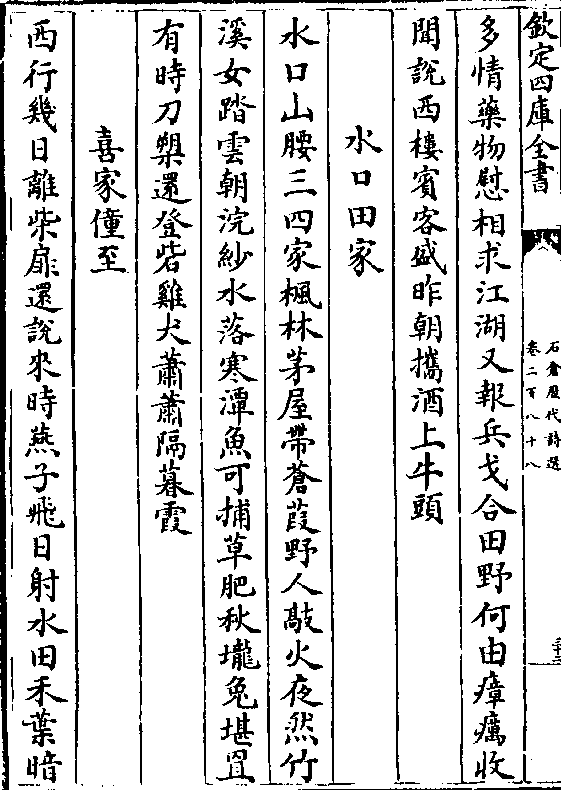 欽定四庫全書
石倉歷代詩選
卷二百八十八
多情藥物慰相求江湖又報兵戈合田野何由瘴癘收
聞說西樓賓客盛昨朝攜酒上牛頭
水口田家
水口山腰三四家楓林茅屋帶蒼葭野人敲火夜然竹
溪女踏雲朝浣紗水落寒潭魚可捕草肥秋壠兔堪罝
有時刀槊還登砦雞犬蕭蕭隔暮霞
喜家僮至
西行幾日離柴扉還說來時燕子飛日射水田禾葉暗